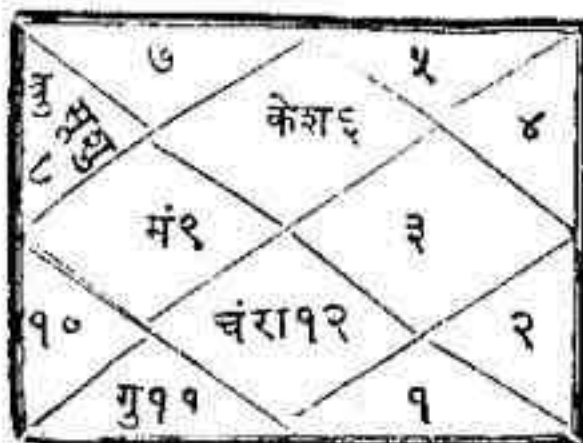 ७ ५
बु
सूशु
८
केश६
४
मं९
३
१०
चंरा१२
२
गु११
१